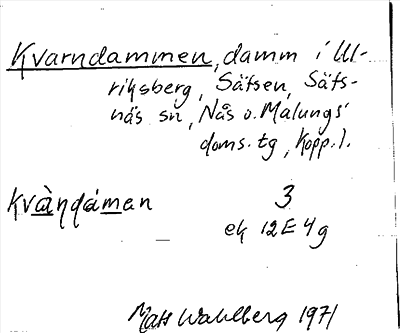 Kvarndammen, damm i Ul-
riksberg, Säfsen, Säfs-
näs sn, Nås o. Malungs
doms. tg, Kopp. l.
kvàṇdámen 3
ek 12E 4g
Mats Wahlberg 1971